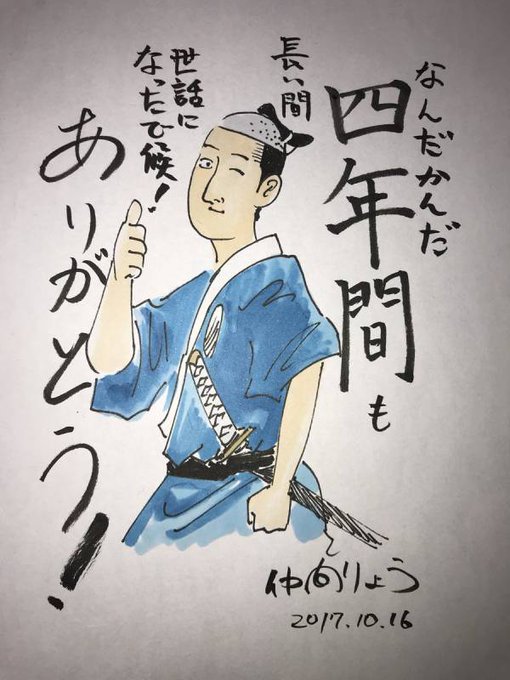 なんだかんだ
四年間も
長い間
世話に
なったで候!
ありがとう!
仲間りょう
2017.10.16